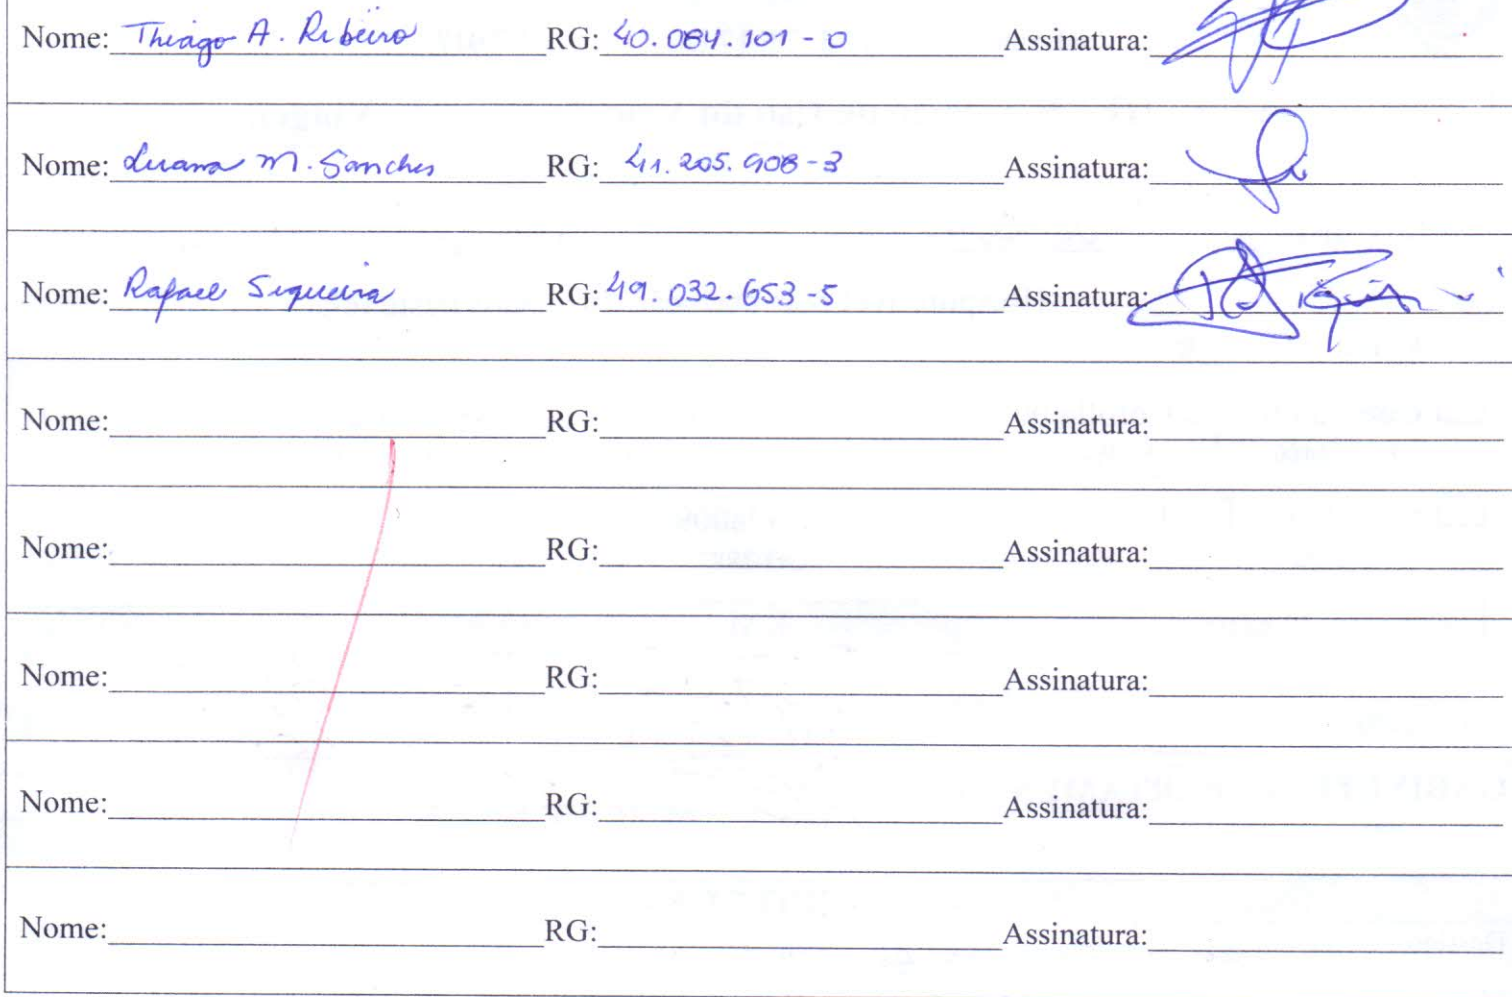 Nome: Thiago A. Ribeiro RG: 40.084.101-0 Assinatura:
Nome: Luana M. Sanches RG: 41.205.908-3 Assinatura:
Nome: Rafael Siqueira RG: 49.032.653-5 Assinatura:
Nome: RG: Assinatura:
Nome: RG: Assinatura:
Nome: RG: Assinatura:
Nome: RG: Assinatura:
Nome: RG: Assinatura: